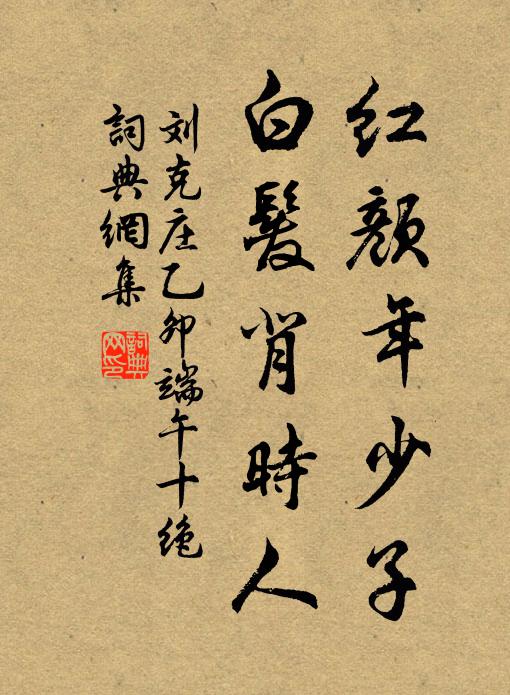 红颜年少子
白髮背時人
刘克庄乙卯端午十绝
詞典網集
詞典網印